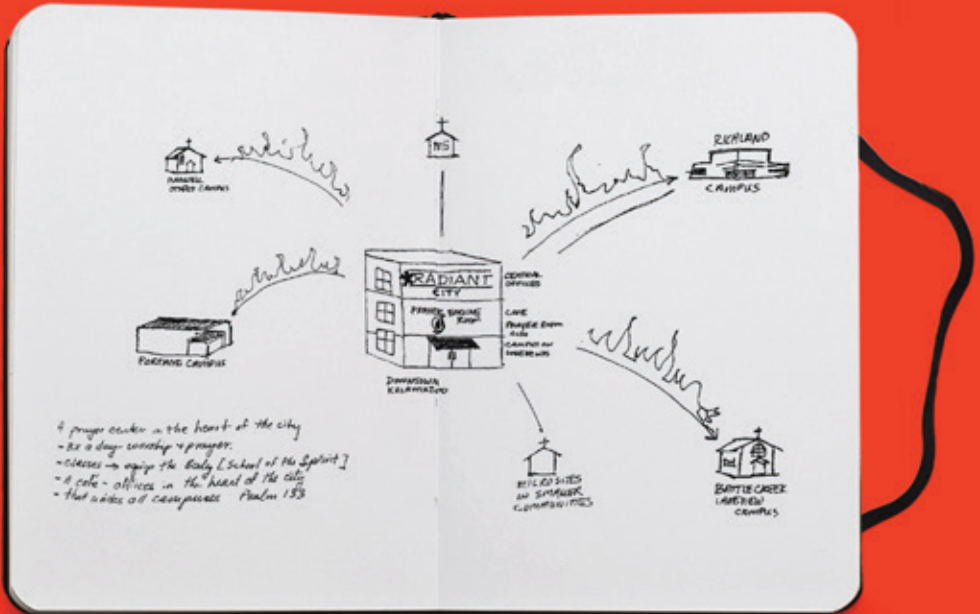 MS
RICHLAND
CAMPUS
CAMPUS
RADIANT
CITY
CENTRAL
OFFICES
PRAYER
ROOM
CAFE
PRAYER ROOM
CAMPUS ON
WEEKENDS
PORTAGE CAMPUS
DOWNTOWN
KALAMAZOO
MICROSITES
IN SMALLER
COMMUNITIES
BATTLE CREEK
LAKEVIEW
CAMPUS
A prayer center in the heart of the city
- a day worship + prayer.
- classes → equip the Body [School of the Spirit]
- A cafe - offices in the heart of the city
- that unites all campuses Psalm 133